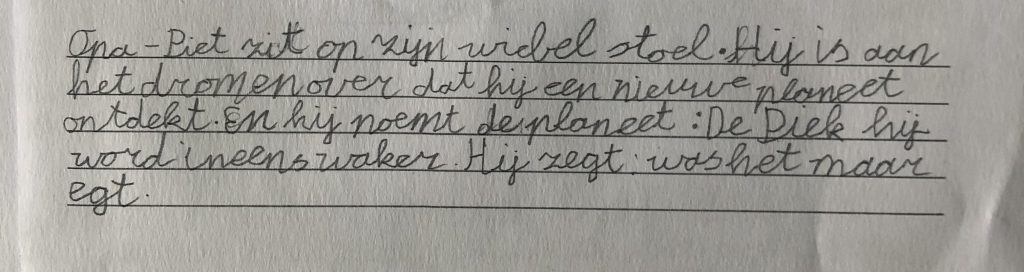 Opa-Piet zit op zijn wiebel stoel. Hij is aan
het dromen over dat hij een nieuwe planeet
ontdekt. En hij noemt de planeet: De Piek hij
word ineens waker. Hij zegt: was het maar
egt.